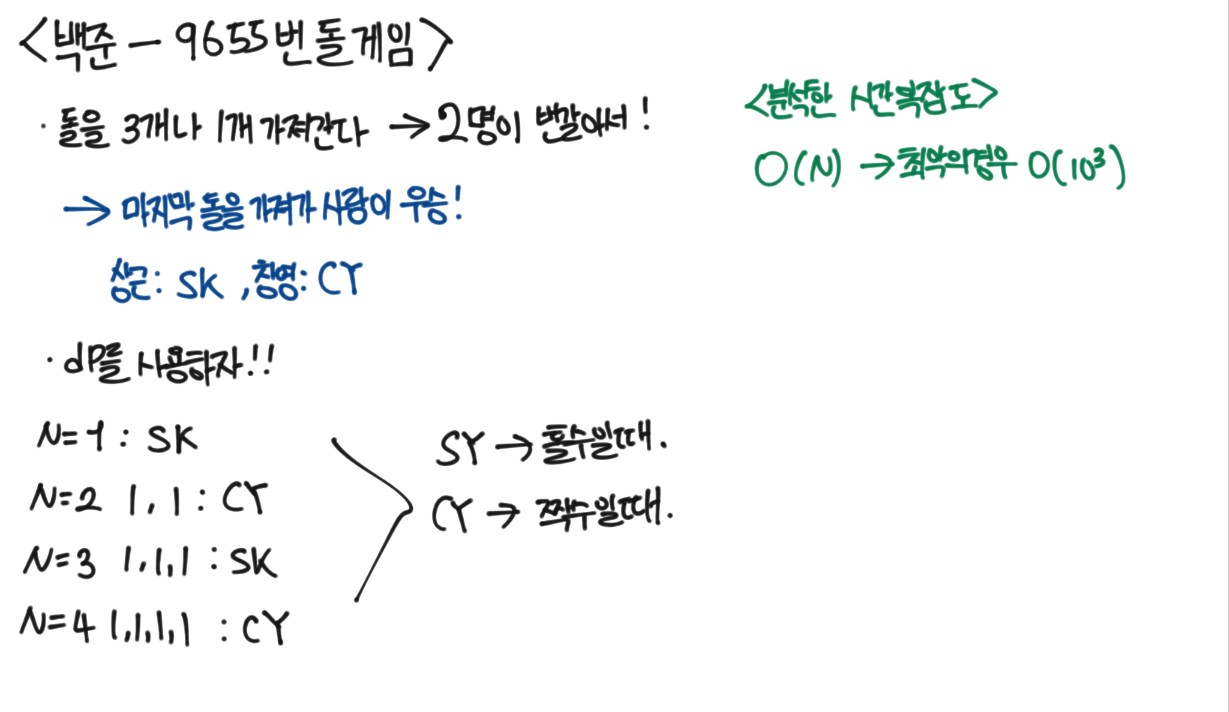 <백준 - 9655번 돌게임>
· 돌을 3개나 1개 가져간다 → 2명이 번갈아서!
→ 마지막 돌을 가져가 사람이 우승!
상근: SK, 창영: CY
· dP를 사용하자!!
N=1 : SK
N=2 1, 1 : CY
N=3 1,1,1 : SK
N=4 1,1,1,1 : CY
SY → 홀수일때.
CY → 짝수일때.
<분석한 시간복잡도>
O(N) → 최악의경우 O(10³)